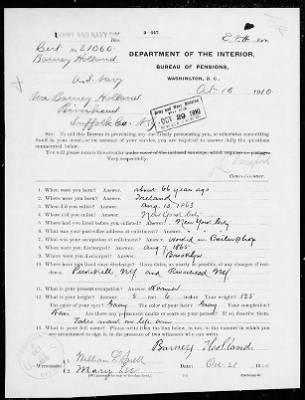 ARMY AND NAVY
3-447
Cert no 21060
Barney Holland
U.S. Navy
DEPARTMENT OF THE INTERIOR,
BUREAU OF PENSIONS,
WASHINGTON, D. C.,
Oct 10 1910
Mr Barney Holland
Suffolk Co. N.Y.
OCT 29 1910
SIR: To aid this Bureau in preventing any one falsely personating you, or otherwise committing
fraud in your name, or on account of your service, you are required to answer fully the questions
enumerated below.
You will please return this circular under cover of the inclosed envelope, which requires no postage.
Very respectfully,
Commissioner.
1. When were you born? Answer. about 66 years ago
2. Where were you born? Answer. Ireland
3. When did you enlist? Answer. Aug. 13, 1863
4. Where did you enlist? Answer. New York City
5. Where had you lived before you enlisted? Answer. New York City
6. What was your post-office address at enlistment? Answer.
7. What was your occupation at enlistment? Answer. worked in Boiler Shop
8. When were you discharged? Answer. Aug 1, 1865
9. Where were you discharged? Answer. Brooklyn
10. Where have you lived since discharge? Give dates, as nearly as possible, of any changes of residence.
Peekskill NY and Riverhead NY
11. What is your present occupation? Answer.
12. What is your height? Answer. 5 feet 6 inches. Your weight? 135
The color of your eyes? Gray The color of your hair? Gray Your complexion?
Are there any permanent marks or scars on your person? If so, describe them.
13. What is your full name? Please write it on the line below, in ink, in the manner in which you
are accustomed to sign it, in the presence of two witnesses who can write.
Barney Holland
Witnesses: 1.
2. Mary
Date: Oct 28 1910